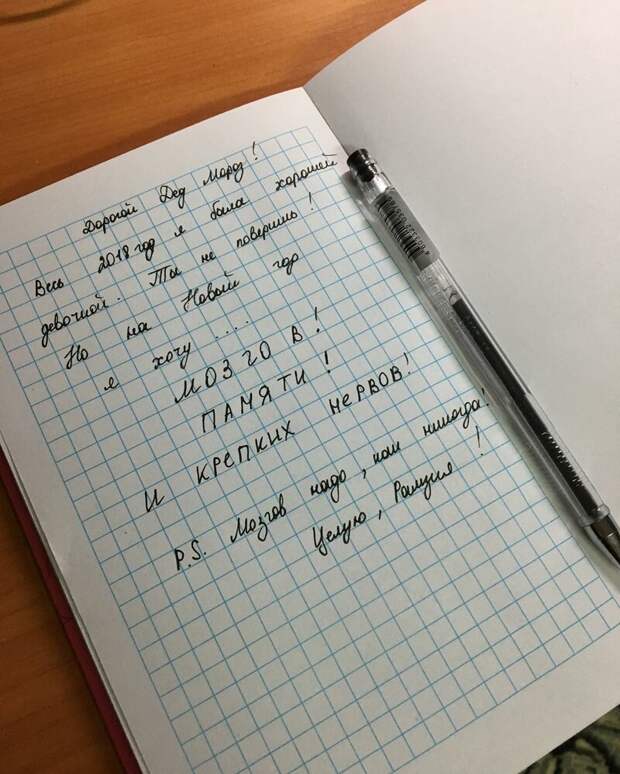 Дорогой Дед Мороз!
Весь 2018 год я была хорошей
девочкой. Ты не поверишь!
Но на Новый год
я хочу ....
МОЗГОВ!
ПАМЯТИ!
И КРЕПКИХ НЕРВОВ!
P.S. Мозгов надо, как никогда!
Целую, Рамзия!